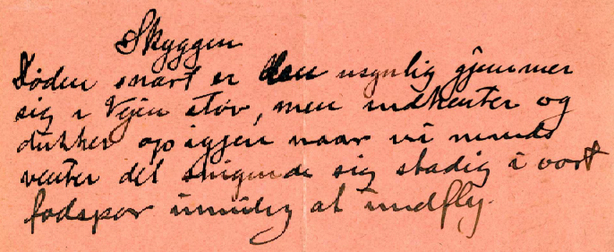 Skyggen
Døden snart er den usynlig gjemmer
sig i Vejen støv, men indhenter og
dukker op igjen naar vi minds
venter det snigende sig stadig i vort
fodspor umulig at undfly.